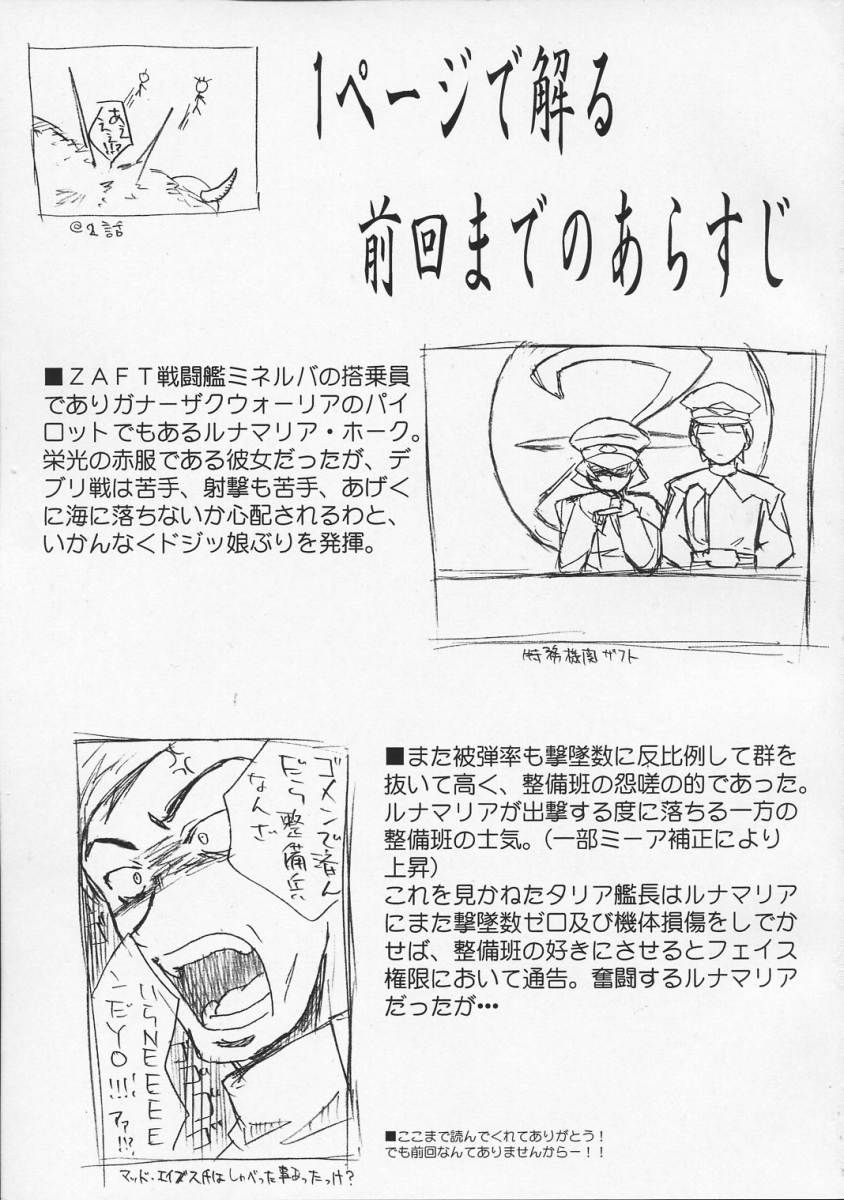 1ページで解る
前回までのあらすじ
あえ
ええ!?
@1話
■ZAFT戦闘艦ミネルバの搭乗員
でありガナーザクウォーリアのパイ
ロットでもあるルナマリア・ホーク。
栄光の赤服である彼女だったが、デ
ブリ戦は苦手、射撃も苦手、あげく
に海に落ちないか心配されるわと、
いかんなくドジッ娘ぶりを発揮。
特務機関ザフト
■また被弾率も撃墜数に反比例して群を
抜いて高く、整備班の怨嗟の的であった。
ルナマリアが出撃する度に落ちる一方の
整備班の士気。(一部ミーア補正により
上昇)
これを見かねたタリア艦長はルナマリア
にまた撃墜数ゼロ及び機体損傷をしでか
せば、整備班の好きにさせるとフェイス
権限において通告。奮闘するルナマリア
だったが…
ゴメンで済ん
だら整備兵
なんざ
いらNEEEE
んだYO!!!!
アァ!?
マッド・エイブス氏はしゃべった事あったっけ?
■ここまで読んでくれてありがとう!
でも前回なんてありませんからー!!